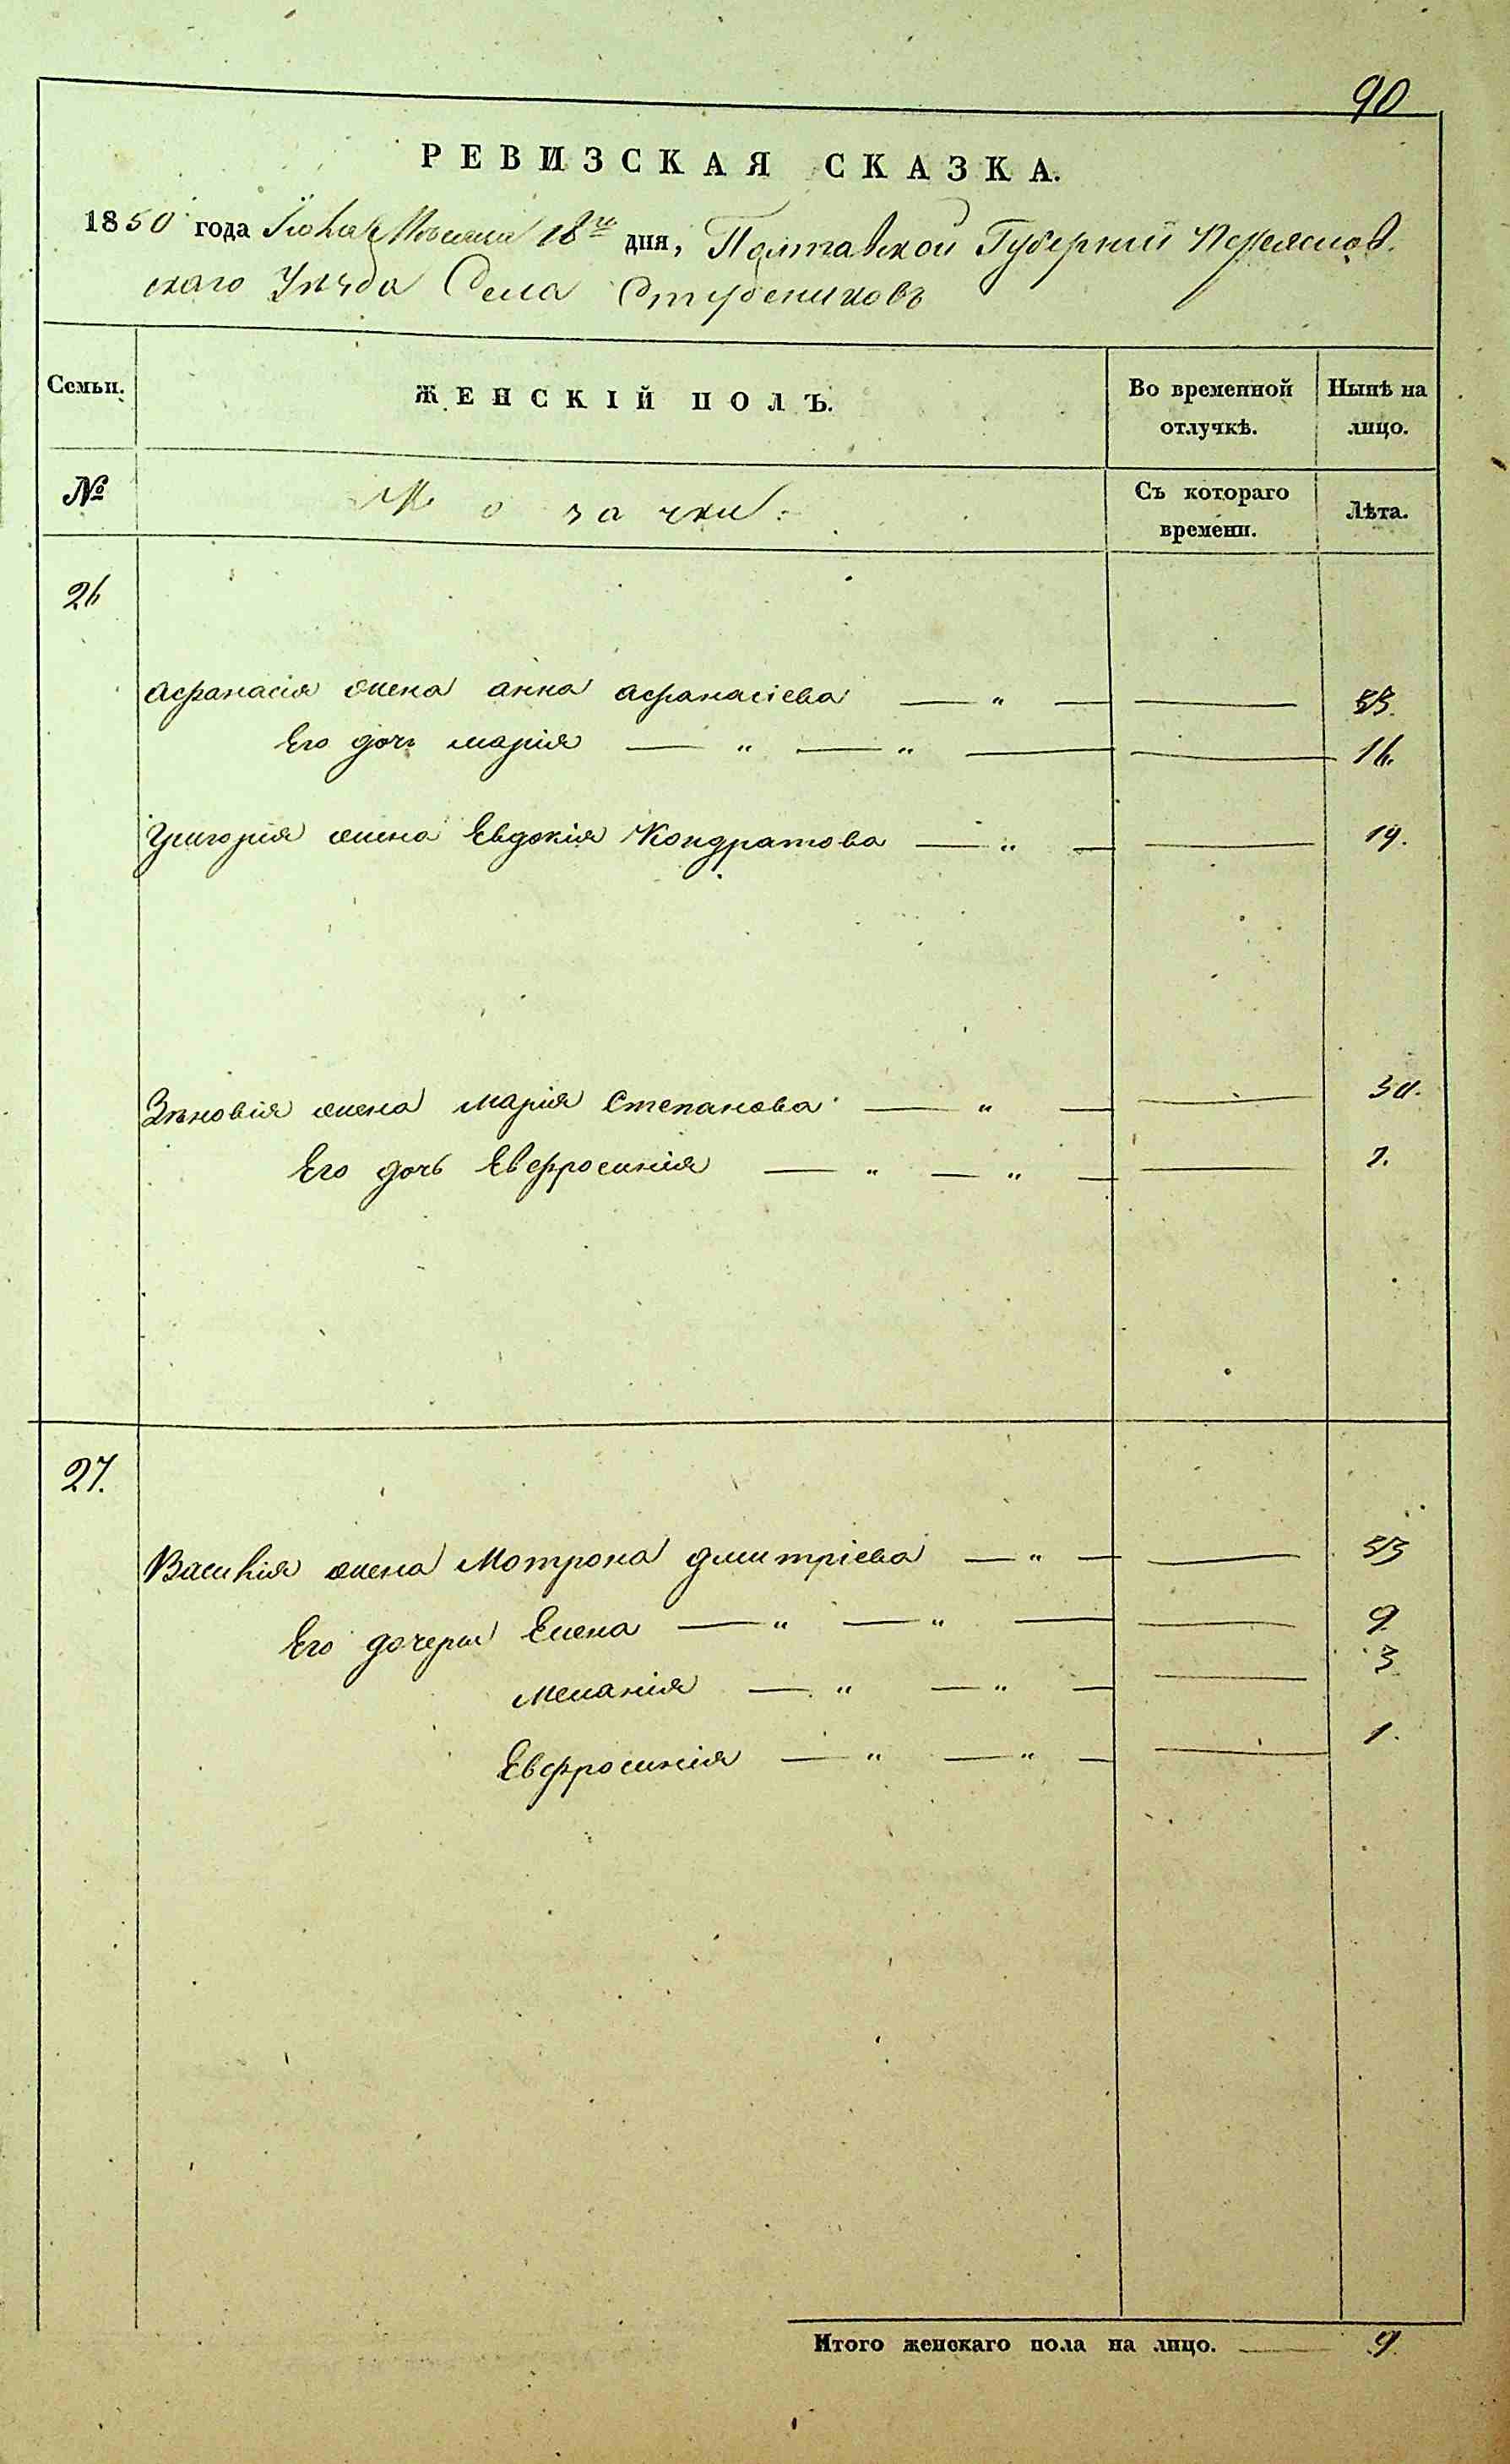 90
РЕВИЗСКАЯ СКАЗКА.
1850 года Мѣсяца 18го дня, Полтавской Губерніи Переяслов-
скаго Уѣзда Села Студениковъ
Семьи. ЖЕНСКІЙ ПОЛЪ. Во временной отлучкѣ. Нынѣ на лицо.
№ Козачки: Съ котораго времени. Лѣта.
26
Афанасія жена анна афанасіева — „ — — 53.
Его дочь марія — „ — „ — — 16.
Григорія жена Евдокія Кондратова — „ — — 19.
Зѣновія жена марія Степанова — „ — — 30.
Его дочь Евфросинія — „ — „ — —
27.
Василія жена Мотрона дмитріева — „ — —
Его дочери Елена — „ — „ — — 9.
меланія — „ — „ — — 3
Евфросинія — „ — „ — — 1.
Итого женскаго пола на лицо. — 9.